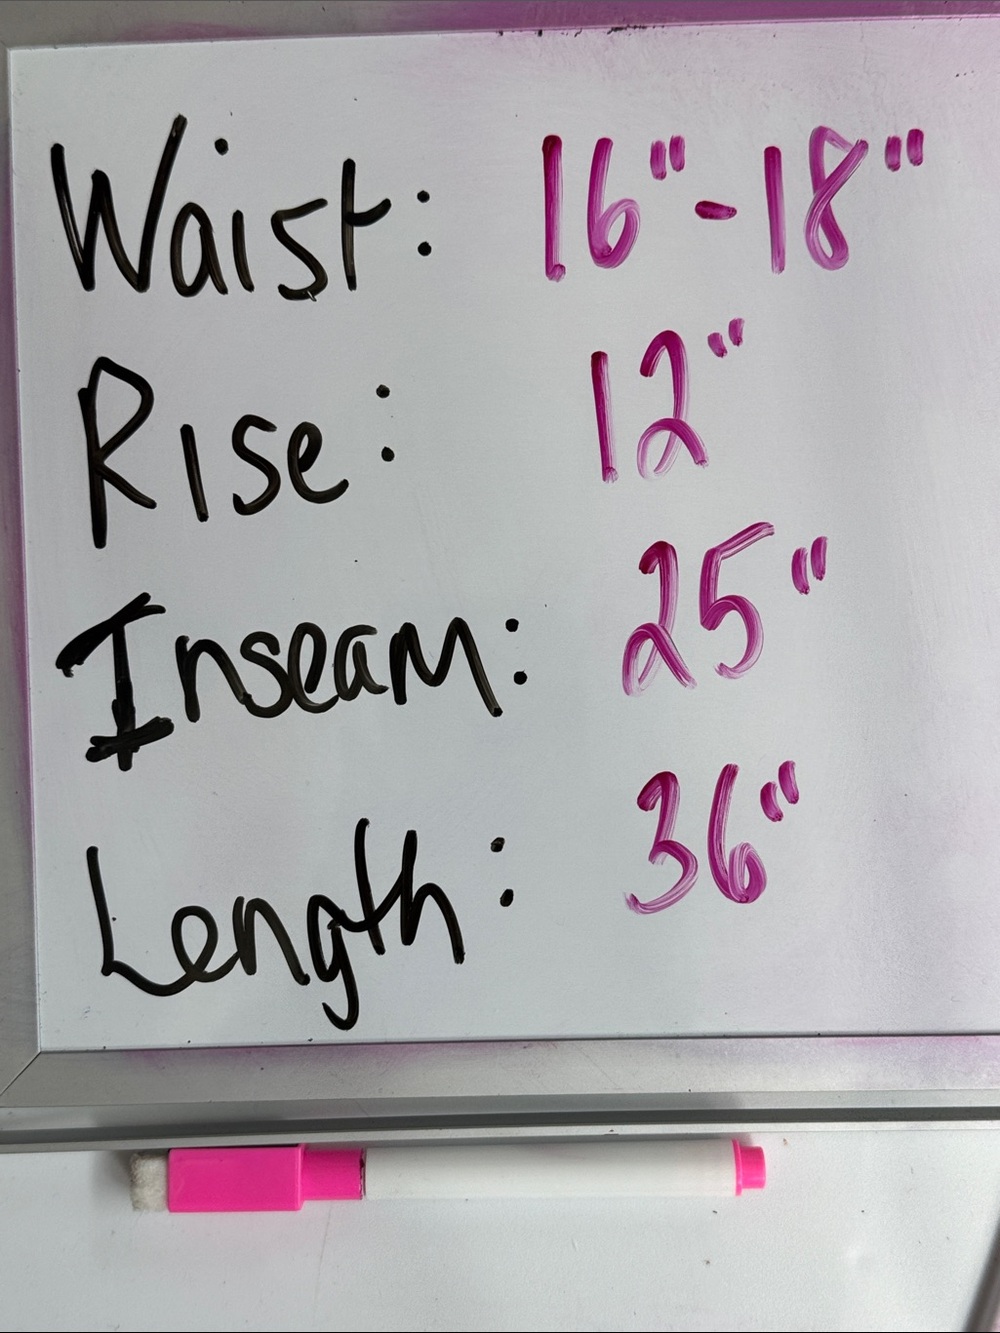 Waist: 16"-18"
Rise: 12"
Inseam: 25"
Length: 36"